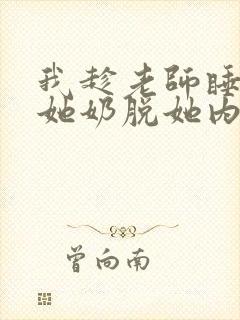 我趁老師睡
她奶脱她内
曾向南